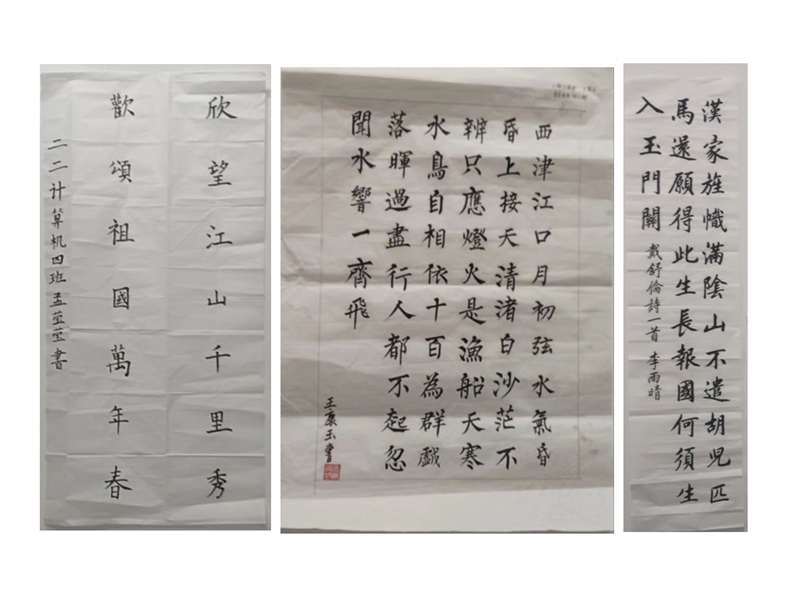 欣望江山千里秀
歡頌祖國萬年春
二二计算机四班孟莹莹書
西津江口月初弦水氣昏
昏上接天清渚白沙茫不
辨只應燈火是漁船天寒
水鳥自相依十百為群戲
落暉過盡行人都不起忽
聞水響一齊飛
王康玉書
漢家旌幟滿陰山不遣胡兒匹
馬還願得此生長報國何須生
入玉門關 戴舒倫詩一首 李雨晴